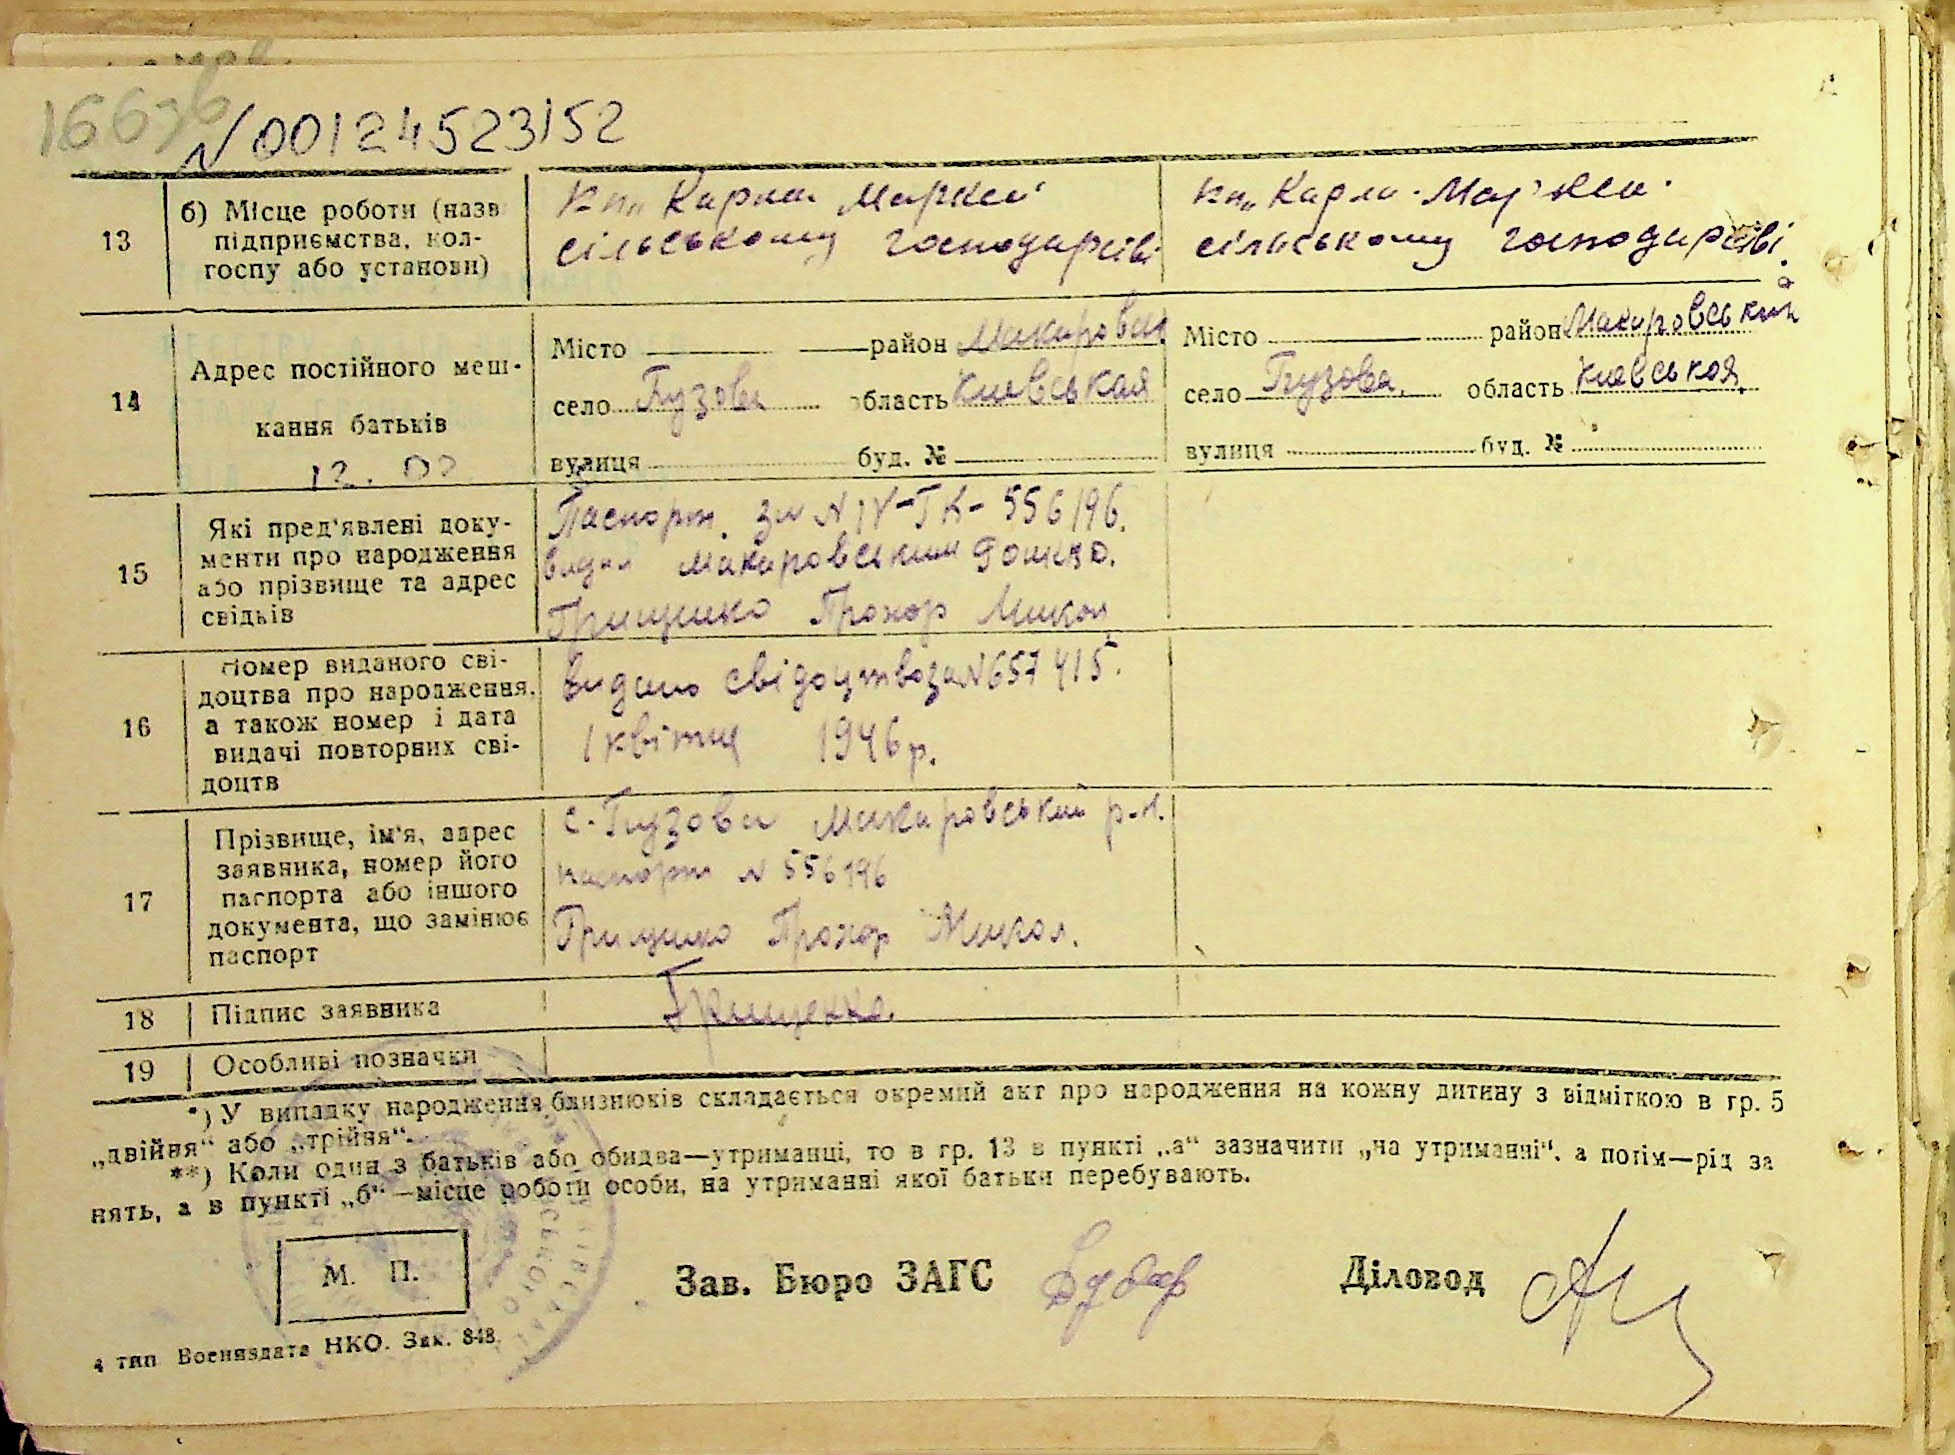 N 00124523152
13
б) Місце роботи (назв
підприємства, кол-
госпу або установи)
кп„ Карла Маркса
сільському господарстві
кп„ Карла Маркса
сільському господарстві
14
Адрес постійного меш-
кання батьків
Місто район
село Гузова область Киевськая
вулиця буд. №
Місто район Макаровський
село Гузова. область Киевськая
вулиця буд. №
15
Які пред'явлені доку-
менти про народження
або прізвище та адрес
свідків
Паспорт за N IV-ГК-556196.
Макаровським
Грищенко Прохор Микол
16
Номер виданого сві-
доцтва про народження,
а також номер і дата
видачі повторних сві-
доцтв
Видано свідоцтво за N 657415.
1 квітня 1946 р.
17
Прізвище, ім'я, адрес
заявника, номер його
паспорта або іншого
документа, що замінює
паспорт
с. Гузова Макаровський р-н.
паспорт N 556196
Грищенко Прохор Микол.
18
Підпис заявника
Грищенко.
19
Особливі позначки
*) У випадку народження близнюків складається окремий акт про народження на кожну дитину з відміткою в гр. 5
„двійня“ або „трійня“.
**) Коли один з батьків або обидва—утриманці, то в гр. 13 в пункті „а“ зазначити „на утриманні“, а потім—рід за
нять, а в пункті „б“—місце роботи особи, на утриманні якої батьки перебувають.
М. П.
Зав. Бюро ЗАГС
Діловод
4 тип Воениздата НКО. Зак. 848.